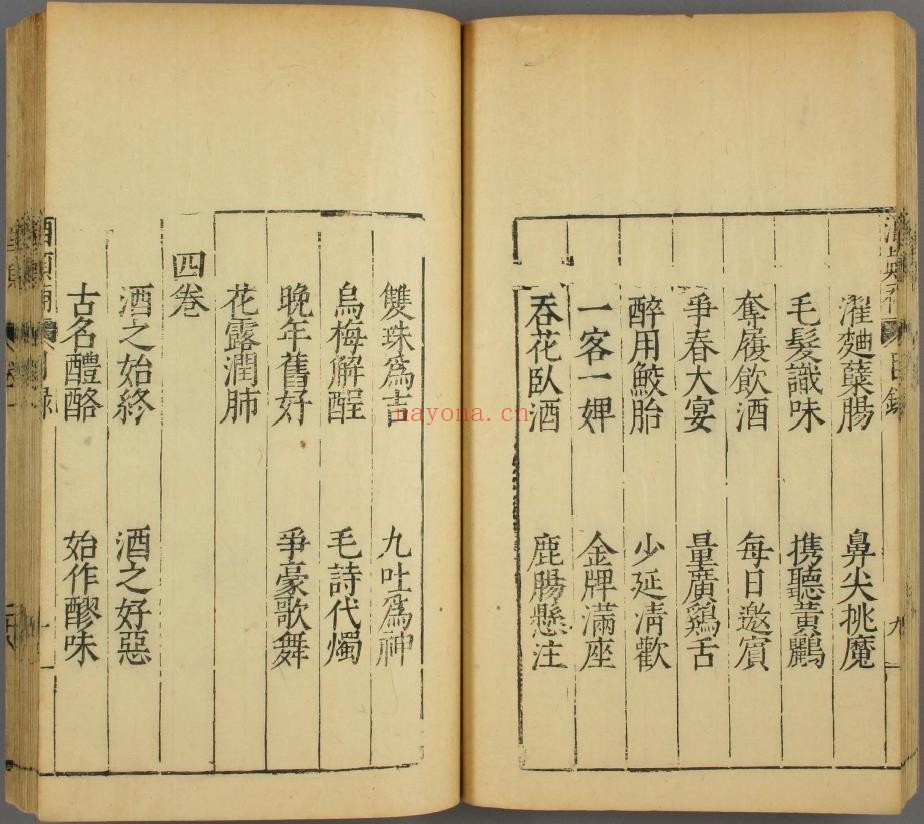 濯麯糵腸 鼻尖挑魔
毛髮識味 携聽黃鸝
奪履飲酒 每日邀賓
爭春大宴 量廣鷄舌
醉用鮫胎 少延淸歡
一客一婢 金牌滿座
吞花臥酒 鹿腸懸注
雙珠爲吉 九吐爲神
烏梅解酲 毛詩代燭
晚年舊好 爭豪歌舞
花露潤肺
四卷
酒之始終 酒之好惡
古名醴酪 始作醪味
nayona.cn